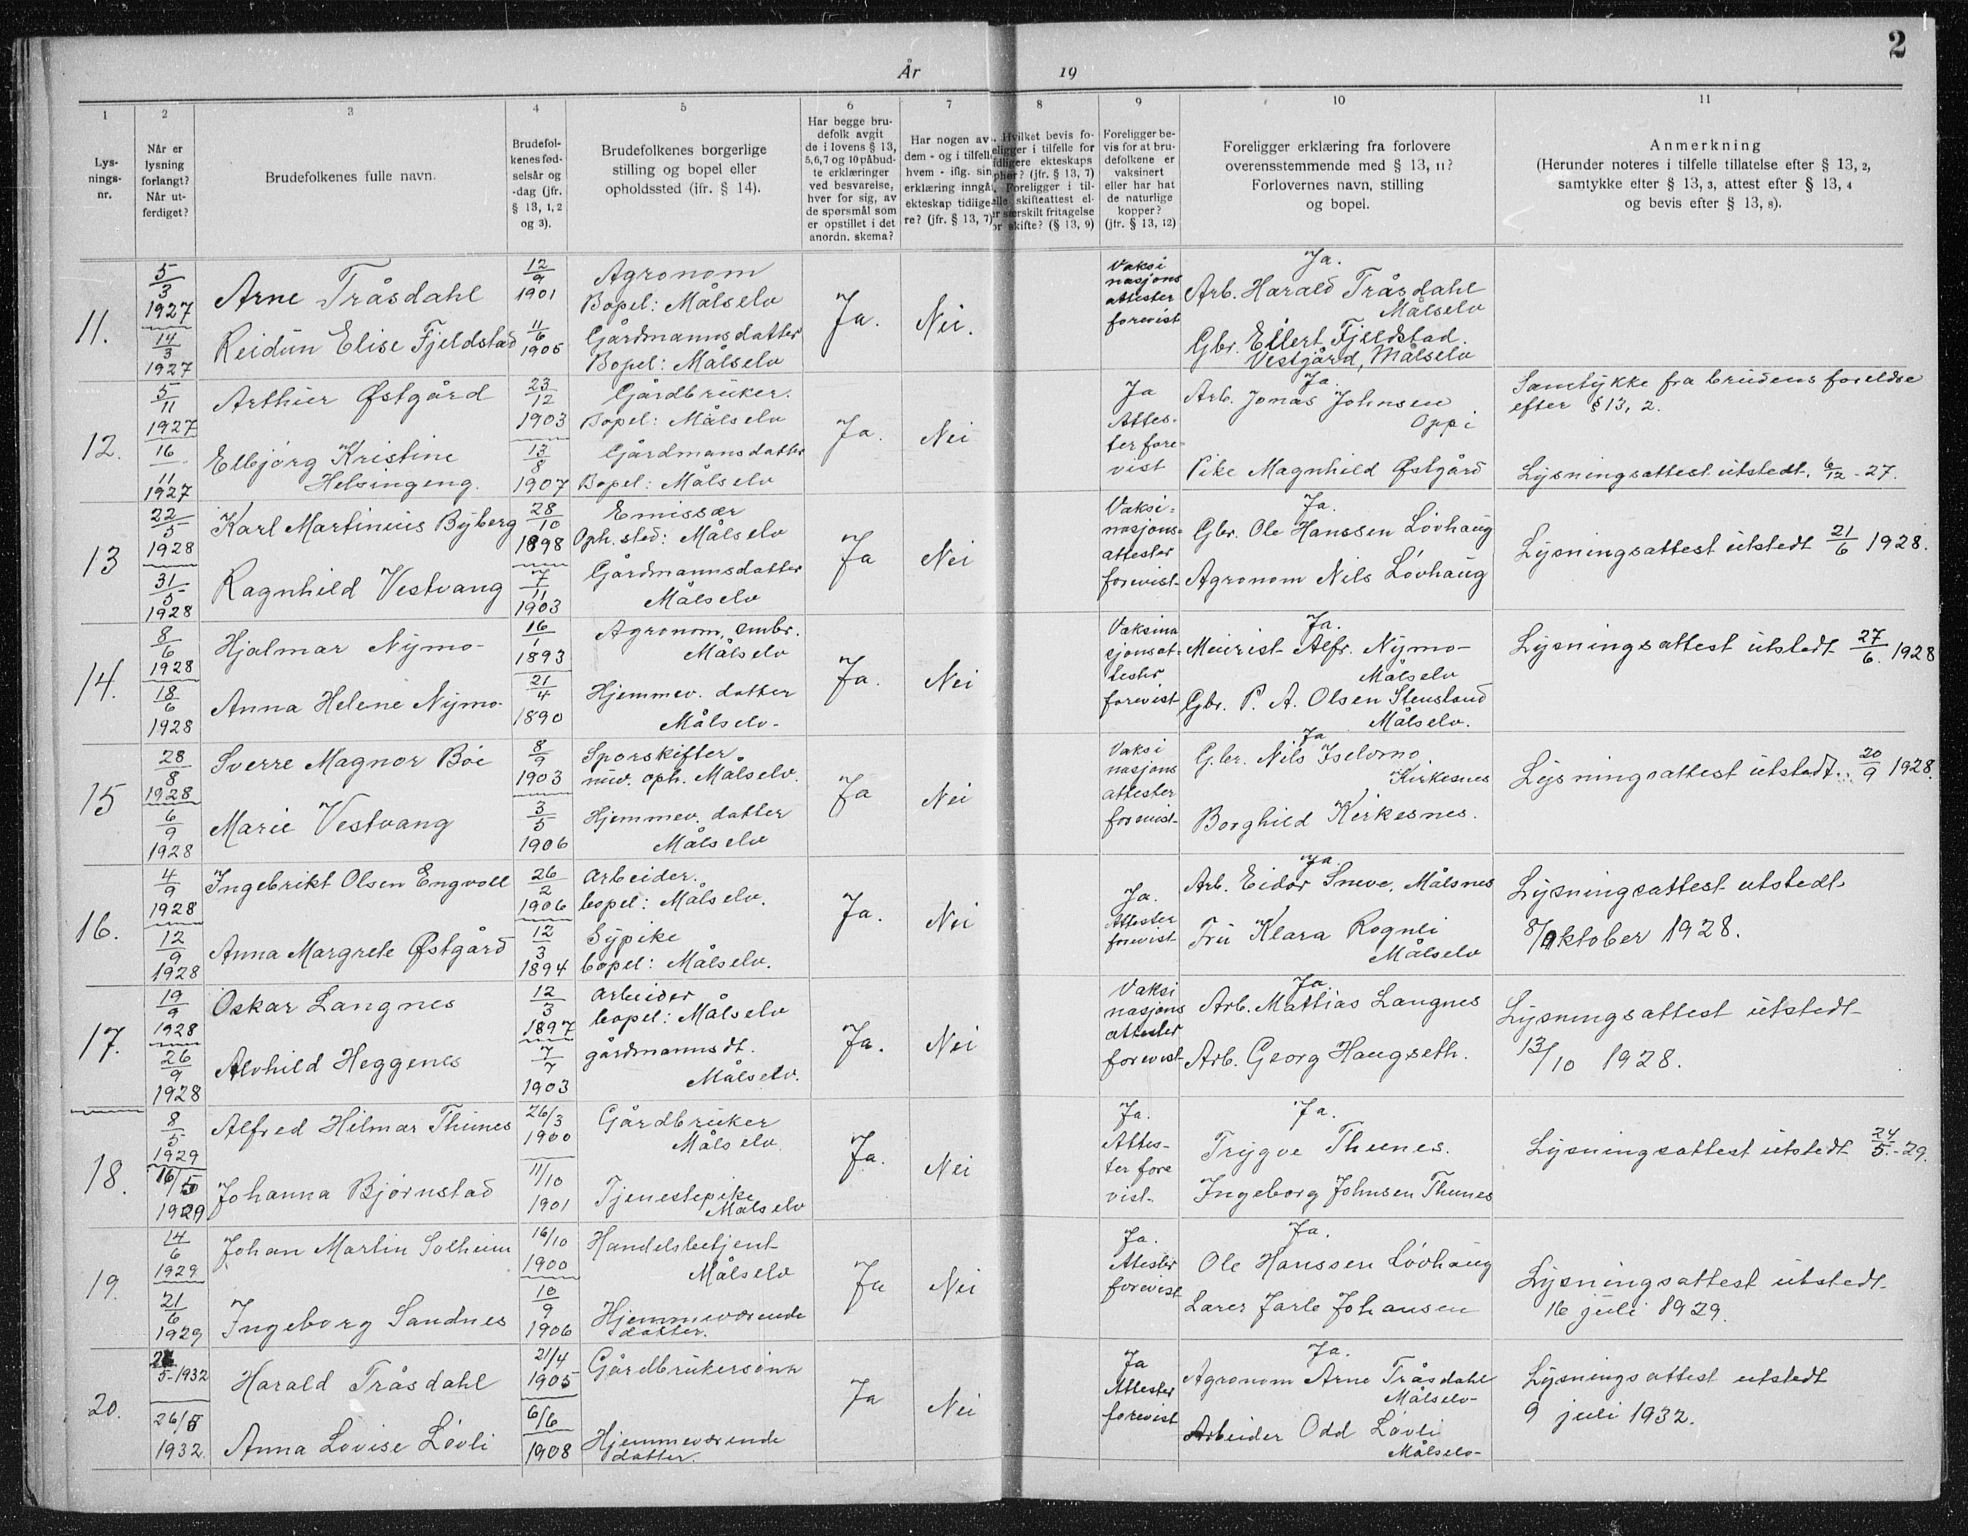 2
År 19
1
Lys-
nings-
nr.
2
Når er
lysning
forlangt?
Når ut-
ferdiget?
3
Brudefolkenes fulle navn.
4
Brudefol-
kenes fød-
selsår og
-dag (jfr.
§ 13, 1, 2
og 3).
5
Brudefolkenes borgerlige
stilling og bopel eller
opholdssted (jfr. § 14).
6
Har begge bru-
defolk avgit
de i lovens § 13,
5,6,7 og 10 påbud-
te erklæringer
ved besvarelse,
hver for sig, av
de spørsmål som
er opstillet i det
anordn. skema?
7
Har nogen av
dem - og i tilfelle
hvem - iflg. sin
erklæring inngåt
ekteskap tidlige-
re? (jfr. § 13, 7)
8
Hvilket bevis fo-
religger i tilfelle for
tidligere ekteskaps
ophør? (jfr. § 13, 7)
Foreligger i til-
felle skifteattest el-
ler særskilt fritagelse
for skifte? (§ 13, 9)
9
Foreligger be-
vis for at bru-
defolkene er
vaksinert
eller har hat
de naturlige
kopper?
(jfr. § 13, 12)
10
Foreligger erklæring fra forlovere
overensstemmende med § 13, 11?
Forlovernes navn, stilling
og bopel.
11
Anmerkning
(Herunder noteres i tilfelle tillatelse efter § 13, 2,
samtykke efter § 13, 3, attest efter § 13, 4
og bevis efter § 13, 8).
11.
5/3
1927
14/3
1927
Arne Tråsdahl
Reidun Elise Fjeldstad
12/9
1901
11/6
1905
Agronom
Bopel: Målselv
Gårdmannsdatter
Bopel: Målselv
Ja.
Nei.
Vaksi
nasjons
attester
forevist
Ja.
Arb. Harald Tråsdahl
Målselv
Gbr. Eilert Fjeldstad.
Vestgård, Målselv
12.
5/11
1927
16/11
1927
Arthur Østgård
Elbjørg Kristine
Helsingeng.
23/12
1903
13/8
1907
Gårdbruker.
Bopel: Målselv
Gårdmansdatter
Bopel: Målselv
Ja.
Nei
Ja
Attes-
ter fore-
vist
Ja.
Arb. Jonas Johnsen
Oppi
Pike Magnhild Østgård
Samtykke fra brudens foreldre
efter § 13, 2.
Lysningsattest utstedt. 6/12 - 27.
13
22/5
1928
31/5
1928
Karl Martinius Byberg
Ragnhild Vestvang
28/10
1898
7/11
1903
Emissær
Oph. sted: Målselv
Gårdmannsdatter
Målselv
Ja
Nei
Vaksi-
nasjons-
attester
forevist
Ja.
Gbr. Ole Hanssen Løvhaug
Agronom Nils Løvhaug
Lysningsattest utstedt 21/6 1928.
14.
8/6
1928
18/6
1928
Hjalmar Nymo
Anna Helene Nymo
16/1
1893
21/4
1890
Agronom, småbr.
Målselv
Hjemmev. datter
Målselv.
Ja.
Nei
Vaksina
sjonsat-
tester
forevist
Ja.
Meierist Alfr. Nymo
Målselv
Gbr. P. A. Olsen Stensland
Målselv.
Lysningsattest utstedt 27/6. 1928
15
28/8
1928
6/9
1928
Sverre Magnor Bøe
Marie Vestvang
8/9
1903
3/5
1906
Sporskifter
nuv. oph. Målselv.
Hjemmev. datter
Målselv
Ja
Nei
Vaksi
nasjons
attester
forevist
Ja
Gbr. Nils Iselvmo
Kirkesnes
Borghild Kirkesnes.
Lysningsattest utstedt. 20/9 1928.
16.
4/9
1928
12/9
1928
Ingebrikt Olsen Engvoll
Anna Margrete Østgård
26/2
1906
12/3
1894
Arbeider.
bopel: Målselv.
Sypike
bopel: Målselv.
Ja.
Nei
Ja.
Attester
forevist
Ja.
Arb. Eidar Sneve, Målsnes
Fru Klara Rognli
Målselv
Lysningsattest utstedt
8/oktober 1928.
17.
19/9
1928
26/9
1928
Oskar Langnes
Alvhild Heggenes
12/3
1897
7/7
1903
Arbeider
bopel: Målselv
gårdmannsdt.
Målselv.
Ja.
Nei
Vaksi
nasjons
attester
forevist
Ja.
Arb. Mattias Langnes
Arb. Georg Haugseth.
Lysningsattest utstedt
13/10 1928.
18.
8/5
1929
16/5
1929
Alfred Hilmar Thunes
Johanna Bjørnstad
26/3
1900
11/10
1901
Gårdbruker
Målselv
Tjenestepike
Målselv
Ja.
Nei
Ja.
Attes-
ter fore
vist
Ja.
Trygve Thunes.
Ingeborg Johnsen Thunes
Lysningsattest utstedt 24/5. - 29.
19.
14/6
1929
21/6
1929
Johan Martin Solheim
Ingeborg Sandnes
16/10
1900
10/9
1906
Handelsbetjent
Målselv
Hjemmeværende
datter.
Ja
Nei
Ja.
Attester
forevist
Ja.
Ole Hanssen Løvhaug
Lærer Jarle Johansen
Lysningsattest utstedt
16 juli 1929.
20.
5-1932
26/5
1932
Harald Tråsdahl
Anna Lovise Løvli
21/4
1905
6/6
1908
Gårdbrukersønn
Hjemmeværende
datter.
Ja
Nei
Ja
Attester
forevist
Ja.
Agronom Arne Tråsdahl
Målselv
Arbeider Odd Løvli
Målselv
Lysningsattest utstedt
9 juli 1932.